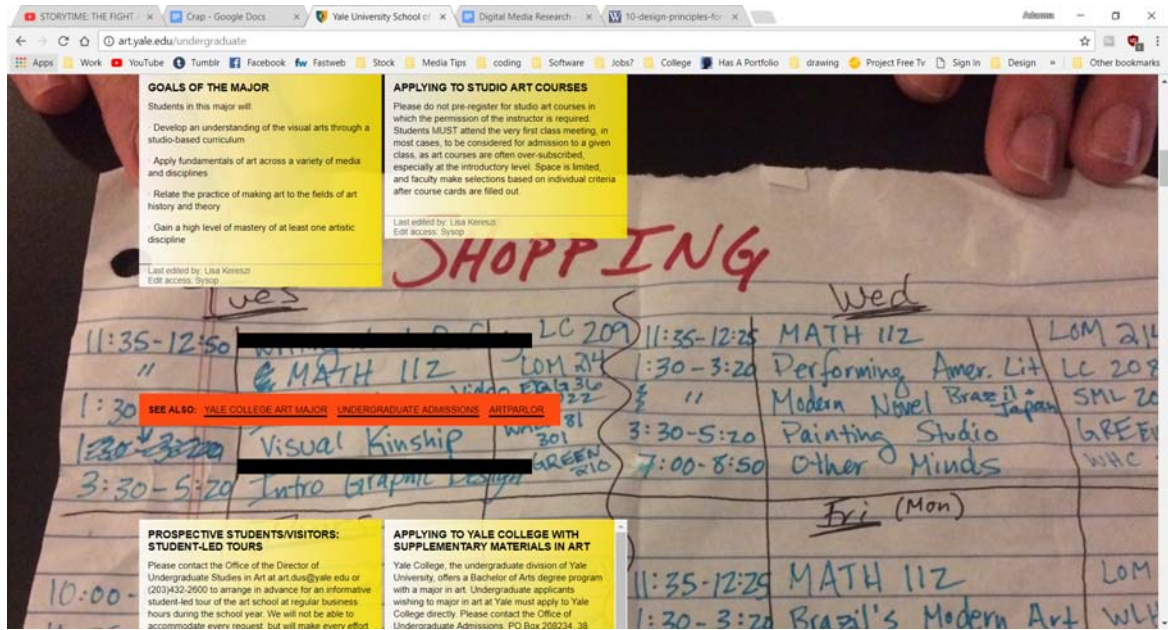 STORYTIME: THE FIGHT
Crap - Google Docs
Yale University School of
Digital Media Research
10-design-principles-for-
art.yale.edu/undergraduate
Apps Work YouTube Tumblr Facebook Fastweb Stock Media Tips coding Software Jobs? College Has A Portfolio drawing Project Free Tv Sign In Design » Other bookmarks
GOALS OF THE MAJOR
Students in this major will:
· Develop an understanding of the visual arts through a
studio-based curriculum
· Apply fundamentals of art across a variety of media
and disciplines
· Relate the practice of making art to the fields of art
history and theory
· Gain a high level of mastery of at least one artistic
discipline
Last edited by: Lisa Kereszi
Edit access: Sysop
APPLYING TO STUDIO ART COURSES
Please do not pre-register for studio art courses in
which the permission of the instructor is required.
Students MUST attend the very first class meeting, in
most cases, to be considered for admission to a given
class, as art courses are often over-subscribed,
especially at the introductory level. Space is limited,
and faculty make selections based on individual criteria
after course cards are filled out.
Last edited by: Lisa Kereszi
Edit access: Sysop
SHOPPING
Tues
11:35-12:50 LC 209
" MATH 112 LOM 214
1:30 Video
Visual Kinship 301
3:30-5:20 Intro Graphic Design GREEN 210
Wed
11:35-12:25 MATH 112 LOM 214
1:30-3:20 Performing Amer. Lit LC 208
" Modern Novel Brazil + Japan SML 20
3:30-5:20 Painting Studio GREEN
7:00-8:50 Other Minds WHC
SEE ALSO: YALE COLLEGE ART MAJOR UNDERGRADUATE ADMISSIONS ARTPARLOR
Fri (Mon)
10:00-
11:35-12:25 MATH 112 LOM
1:30-3:20 Brazil's Modern Art WLH
PROSPECTIVE STUDENTS/VISITORS:
STUDENT-LED TOURS
Please contact the Office of the Director of
Undergraduate Studies in Art at art.dus@yale.edu or
(203)432-2600 to arrange in advance for an informative
student-led tour of the art school at regular business
hours during the school year. We will not be able to
accommodate every request, but will make every effort
APPLYING TO YALE COLLEGE WITH
SUPPLEMENTARY MATERIALS IN ART
Yale College, the undergraduate division of Yale
University, offers a Bachelor of Arts degree program
with a major in art. Undergraduate applicants
wishing to major in art at Yale must apply to Yale
College directly. Please contact the Office of
Undergraduate Admissions, PO Box 208234, 38